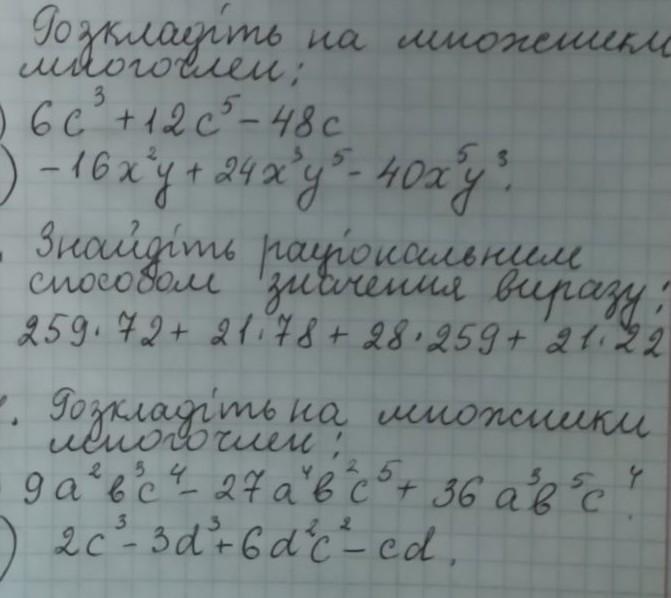 Розкладіть на множники
многочлен:
) 6c³ + 12c⁵ - 48c
) -16x²y + 24x³y⁵ - 40x⁵y³.
. Знайдіть раціональним
способом значення виразу:
259·72 + 21·78 + 28·259 + 21·22
. Розкладіть на множники
многочлен:
9a²b³c⁴ - 27a⁴b²c⁵ + 36a³b⁵c⁴.
) 2c³ - 3d³ + 6d²c² - cd.